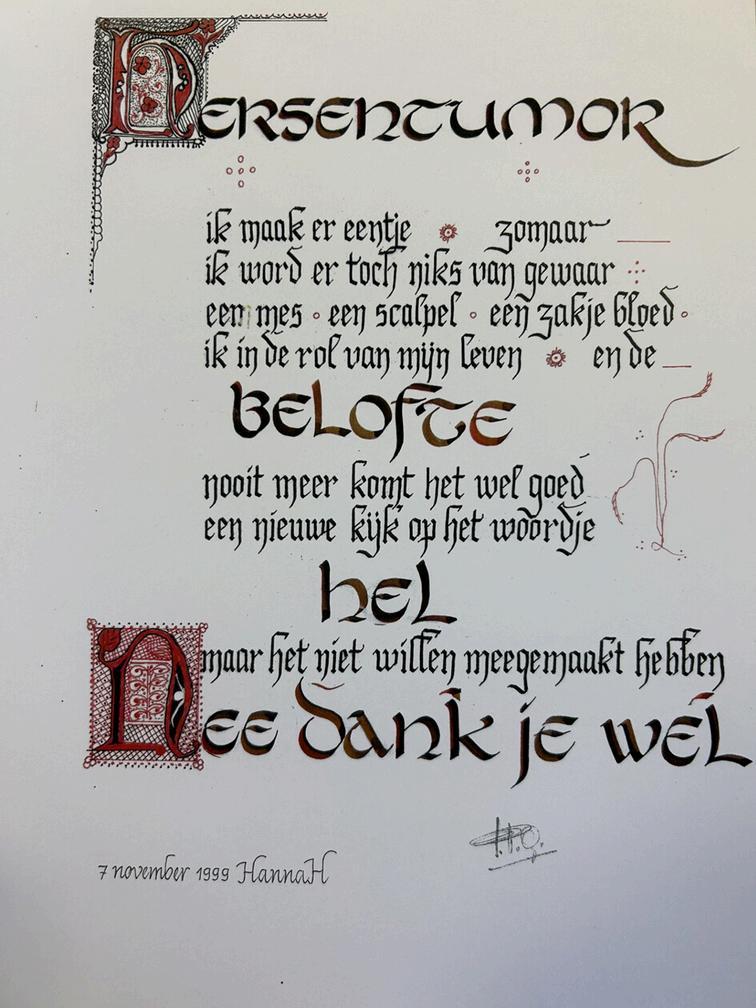 HERSENTUMOR
ik maak er eentje zomaar
ik word er toch niks van gewaar
een mes een scalpel een zakje bloed
ik in de rol van mijn leven en de
BELOFTE
nooit meer komt het wel goed
een nieuwe kijk op het woordje
HEL
maar het niet willen meegemaakt hebben
NEE dank je wel
7 november 1999 HannaH